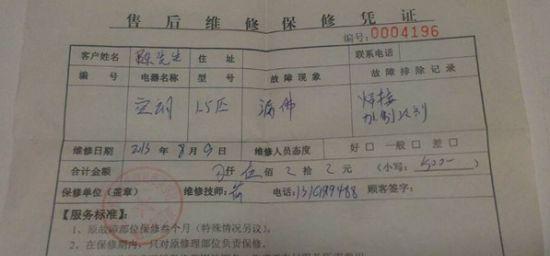 售后维修保修凭证
编号:0004196
客户姓名 陈先生 住址 联系电话
编号 电器名称 型号 故障现象 故障排除记录
空调 1.5匹 漏佛 焊接
加制冷剂
维修日期 2013年8月9日 维修人员态度 好口 一般口 差口
合计金额 仟伍佰 拾 元 (小写: 500-
保修单位(盖章) 维修技师: 电话: 顾客签字:
【服务标准】:
1、原故障部位保修叁个月(特殊情况另议)。
2、在保修期内,只对原修理部位负责保修。